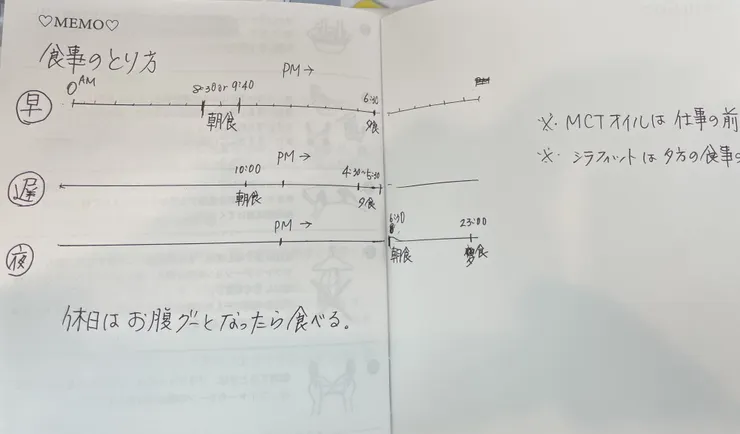 ♡MEMO♡
食事のとり方
0 AM 8:30 or 9:40 PM→ 6:30
早 朝食 夕食
10:00 PM→ 4:30〜5:30
遅 朝食 夕食
PM→ 6:30 23:00
夜 朝食 夕食
休日はお腹グーとなったら食べる。
※. MCTオイルは 仕事の前
※. シラフィットは夕方の食事の